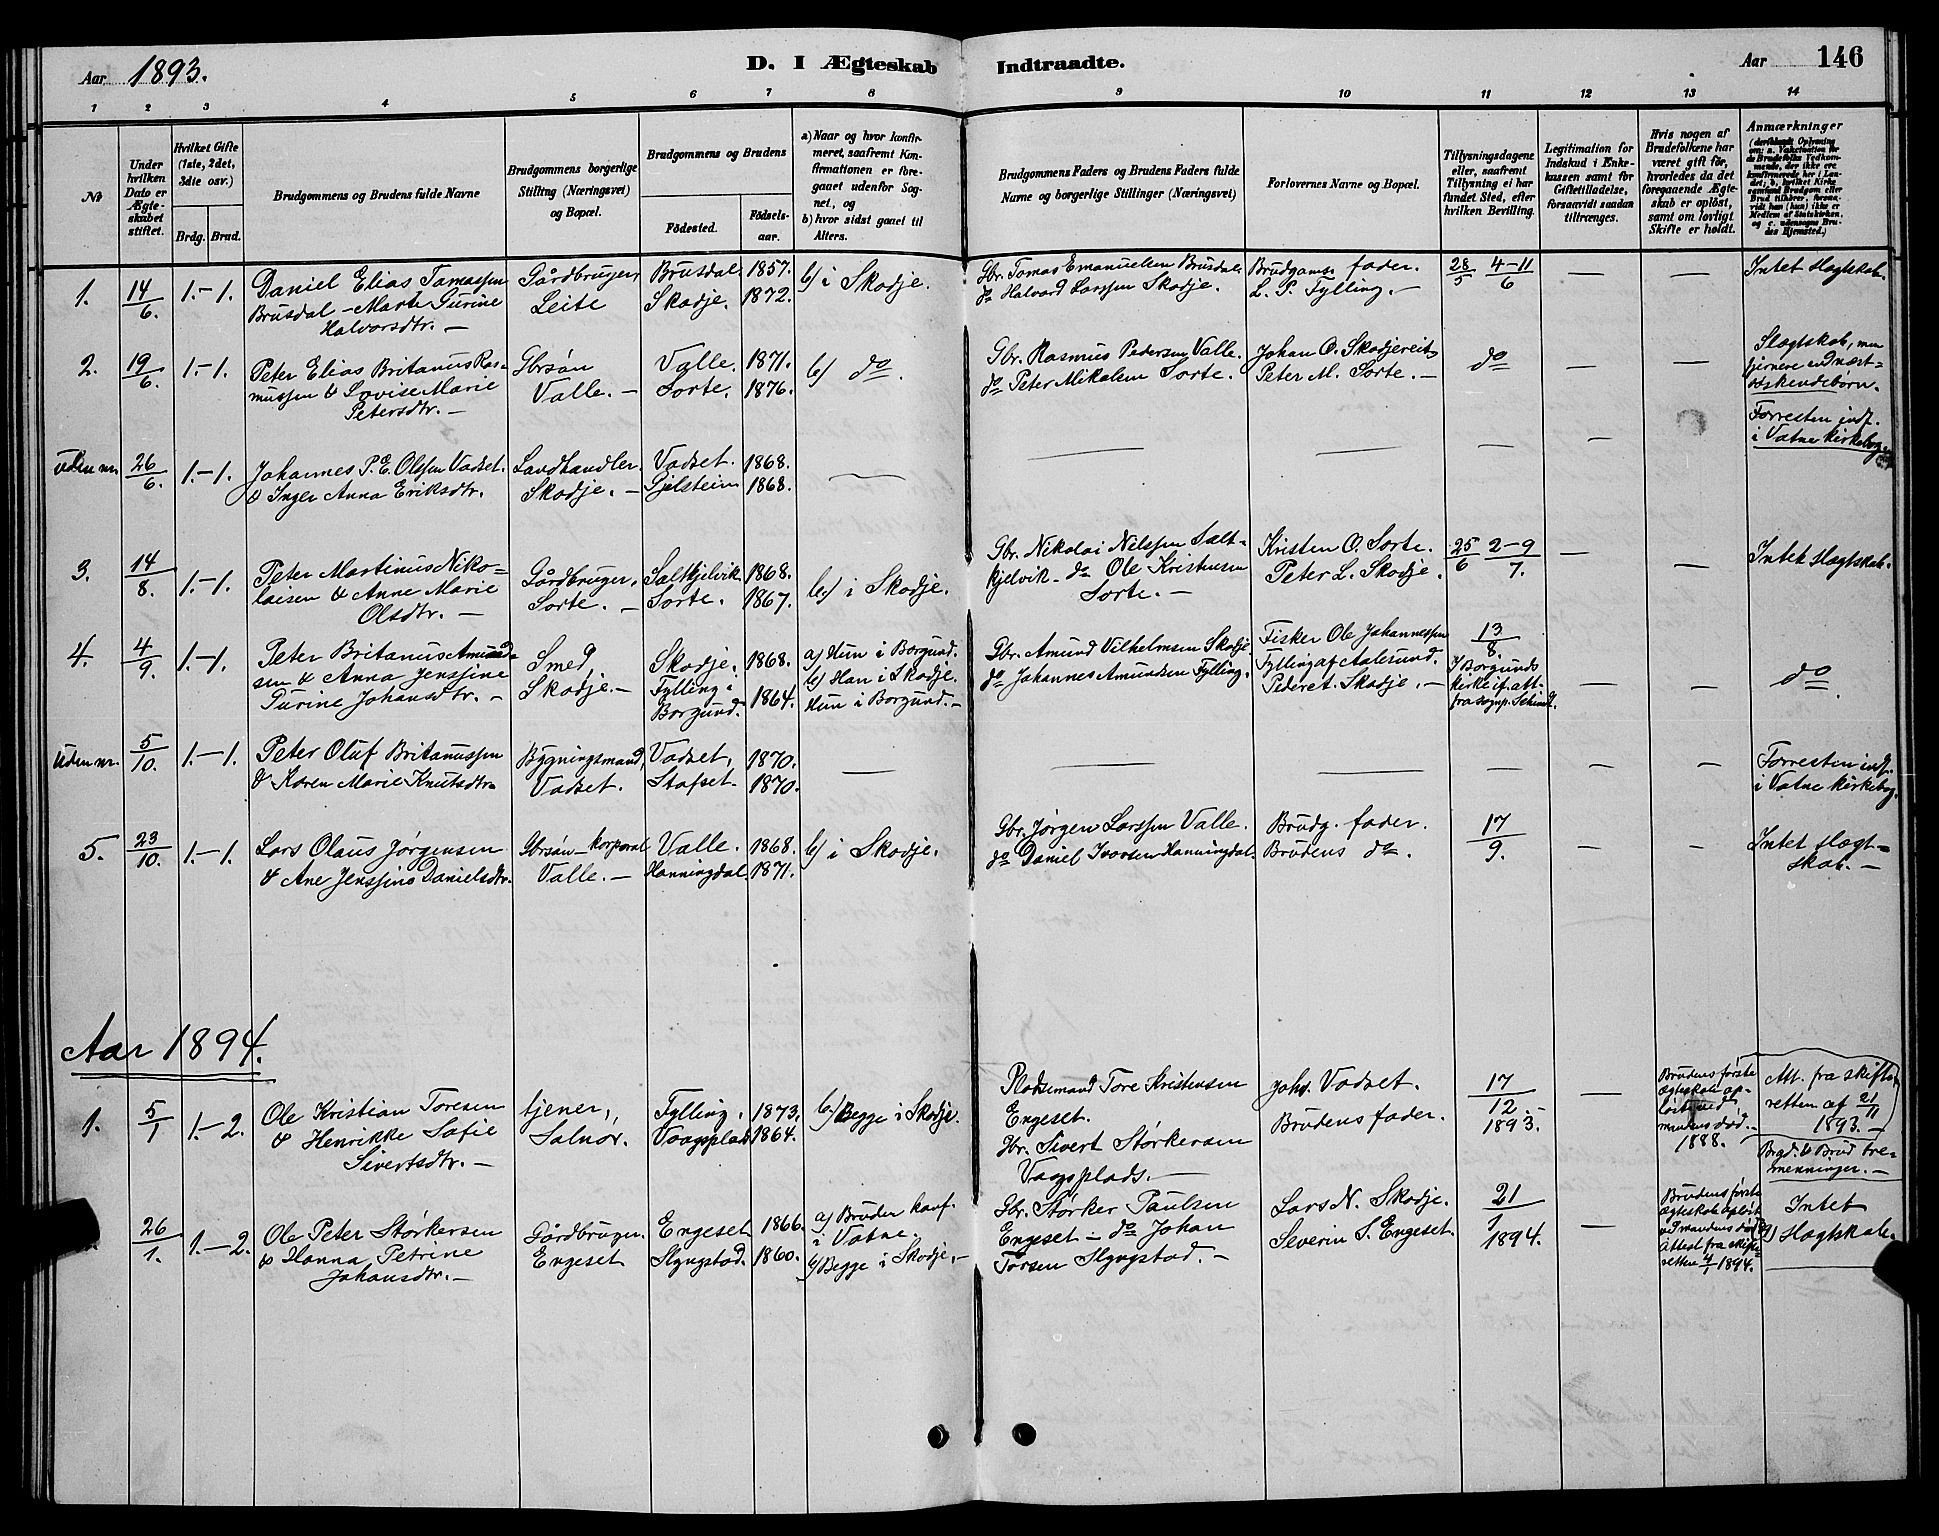 Aar 1893.
D. I Ægteskab Indtraadte.
Aar 146
1 2 3 4 5 6 7 8 9 10 11 12 13 14
No
Under hvilken Dato er Ægteskabet stiftet.
Hvilket Gifte (1ste, 2det, 3die osv.)
Brdg. Brud.
Brudgommens og Brudens fulde Navne
Brudgommens borgerlige Stilling (Næringsvei) og Bopæl.
Brudgommens og Brudens
Födested.
Födselsaar.
a) Naar og hvor konfirmeret, saafremt Konfirmationen er foregaaet udenfor Sognet, og
b) hvor sidst gaaet til Alters.
Brudgommens Faders og Brudens Faders fulde Navne og borgerlige Stillinger (Næringsvei)
Forlovernes Navne og Bopæl.
Tillysningsdagene eller, saafremt Tillysning ei har fundet Sted, efter hvilken Bevilling.
Legitimation for Indskud i Enkekassen samt for Giftetilladelse, forsaavidt saadan tiltrænges.
Hvis nogen af Brudefolkene har været gift för, hvorledes da det foregaaende Ægteskab er oplöst, samt om lovligt Skifte er holdt.
Anmærkninger
1. 14/6. 1.-1. Daniel Elias Tomassen Gårdbruger, Brusdal. 1857. b) i Skodje. Gbr. Tomas Emanuelsen Brusdal. Brudgoms fader. 28/5 4-11/6 — — Intet slægtskab.
Brusdal - Marte Gurine Leite Skodje. 1872. do Halvard Larssen Skodje. L. P. Fylling. —
Halvorsdtr. —
2. 19/6. 1.-1. Peter Elias Britanus Ras- Gbrsön Valle. 1871. b) do. Gbr. Rasmus Pedersen Valle. Johan O. Skodjereit do — — Slægtskab, men
mussen & Lovise Marie Valle. — Sorte. 1876. do Peter Mikalsen Sorte. Peter M. Sorte. — fjernere end næst-
Petersdtr. — søskendebørn.
Uden nr. 26/6. 1.-1. Johannes P. E. Olsen Vadset. Landhandler. Vadset. 1868. — — — — — — Forresten indf.
& Inger Anna Eriksdtr. Skodje. — Gjelstein 1868. i Vatne kirkebog.
3. 14/8. 1.-1. Peter Martinus Niko- Gårdbruger. Saltkjelvik 1868. b.) i Skodje. Gbr. Nikolai Nilssen Salt- Kristen O. Sorte. 25/6 2-9/7. — — Intet slægtskab.
laisen & Anne Marie Sorte. — Sorte. 1867. kjelvik - do Ole Kristensen Peter L. Skodje.
Olsdtr. — Sorte. —
4. 4/9. 1.-1. Peter Britanus Amund- Smed, Skodje. 1868. a) Hun i Borgund. Gbr. Amund Vilhelmsen Skodje. Fisker Ole Johannessen 13/8. — — do.
sen & Anna Jenssine Skodje. — Fylling i 1864. b) Han i Skodje. do Johannes Amundsen Fylling. Fylling af Aalesund. I Borgunds
Gurine Johansdtr. — Borgund. Hun i Borgund. — Peder A. Skodje. — kirke if. att-
fra sognp.
Uden nr. 5/10. 1.-1. Peter Oluf Britanussen Bygningsmand, Vadset, 1870. — — — — — — Forresten indf.
& Karen Marie Knutsdtr. Vadset. Stafset. 1870. i Vatne kirkebog.
5. 23/10. 1.-1. Lars Olaus Jørgensen Gbrsön - korporal Valle. 1868. b) i Skodje. Gbr. Jørgen Larssen Valle. Brudg. fader. 17/9. — — Intet slægt-
& Ane Jenssine Danielsdtr. Valle. — Hanningdal. 1871. do Daniel Ivarsen Hanningdal. Brudens do. skab. —
Aar 1894.
1. 5/1 1.-2. Ole Kristian Toresen tjener, Fylling. 1873. b.) Begge i Skodje. Pladsemand Tore Kristensen Johs. Vadset. 17/12.- — Brudens første Att. fra skifte-
& Henrikke Sofie Solnör. Vaagsplads 1864. Engeset. Brudens fader. 1893. ægteskab op- retten af 21/11
Sivertsdtr. — Gbr. Sivert Størkersen løst ved 1893. —
Vaagsplads. — mandens död. — Brgd. & Brud tre-
1888. menninger. —
26/1. 1.-2. Ole Peter Størkersen Gårdbruger. Engeset 1866. a) Bruden konf. Gbr. Størker Paulsen Lars N. Skodje. 21/1 — Brudens første Intet
& Hanna Petrine Engeset Slyngstad. 1860. i Vatne. Engeset - do Johan Severin S. Engeset. 1894. ægteskab opløst slægtskab.
Johansdtr. — b) Begge i Skodje. — Torsen Slyngstad. — ved mandens död
Attest fra skifte-
retten 4/1 1894.